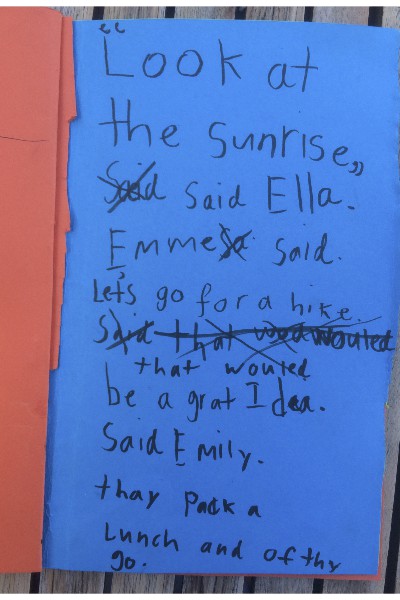 "Look at
the sunrise,"
said Ella.
Emme said.
Let's go for a hike.
that wouted
be a grat Idea.
Said Emily.
thay Pack a
Lunch and of thy
go.